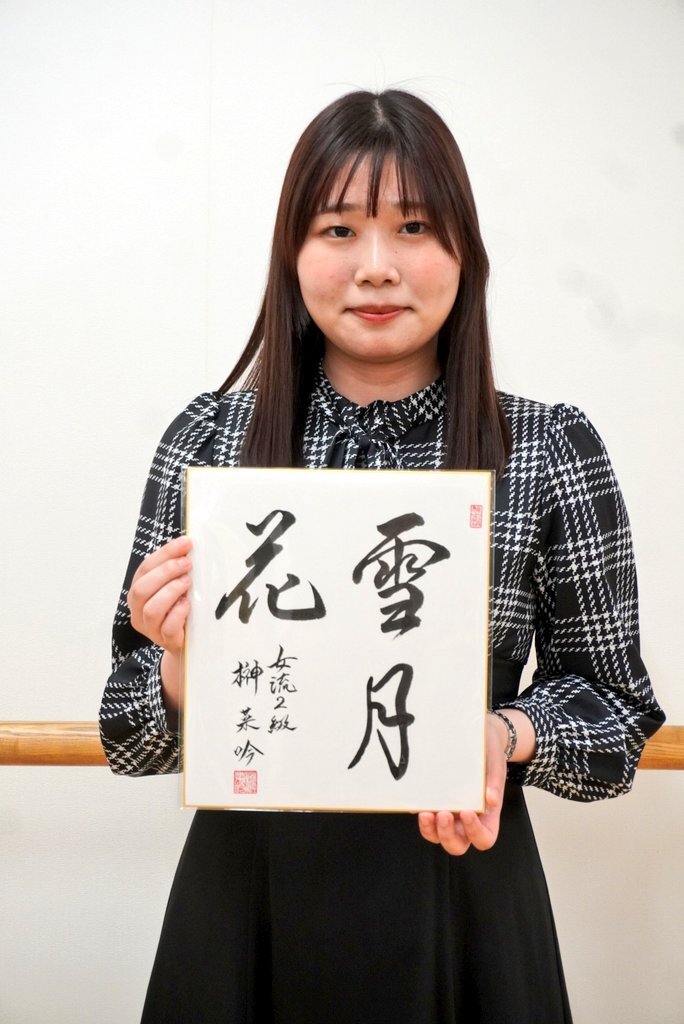 雪月
花
女流2級
榊菜吟